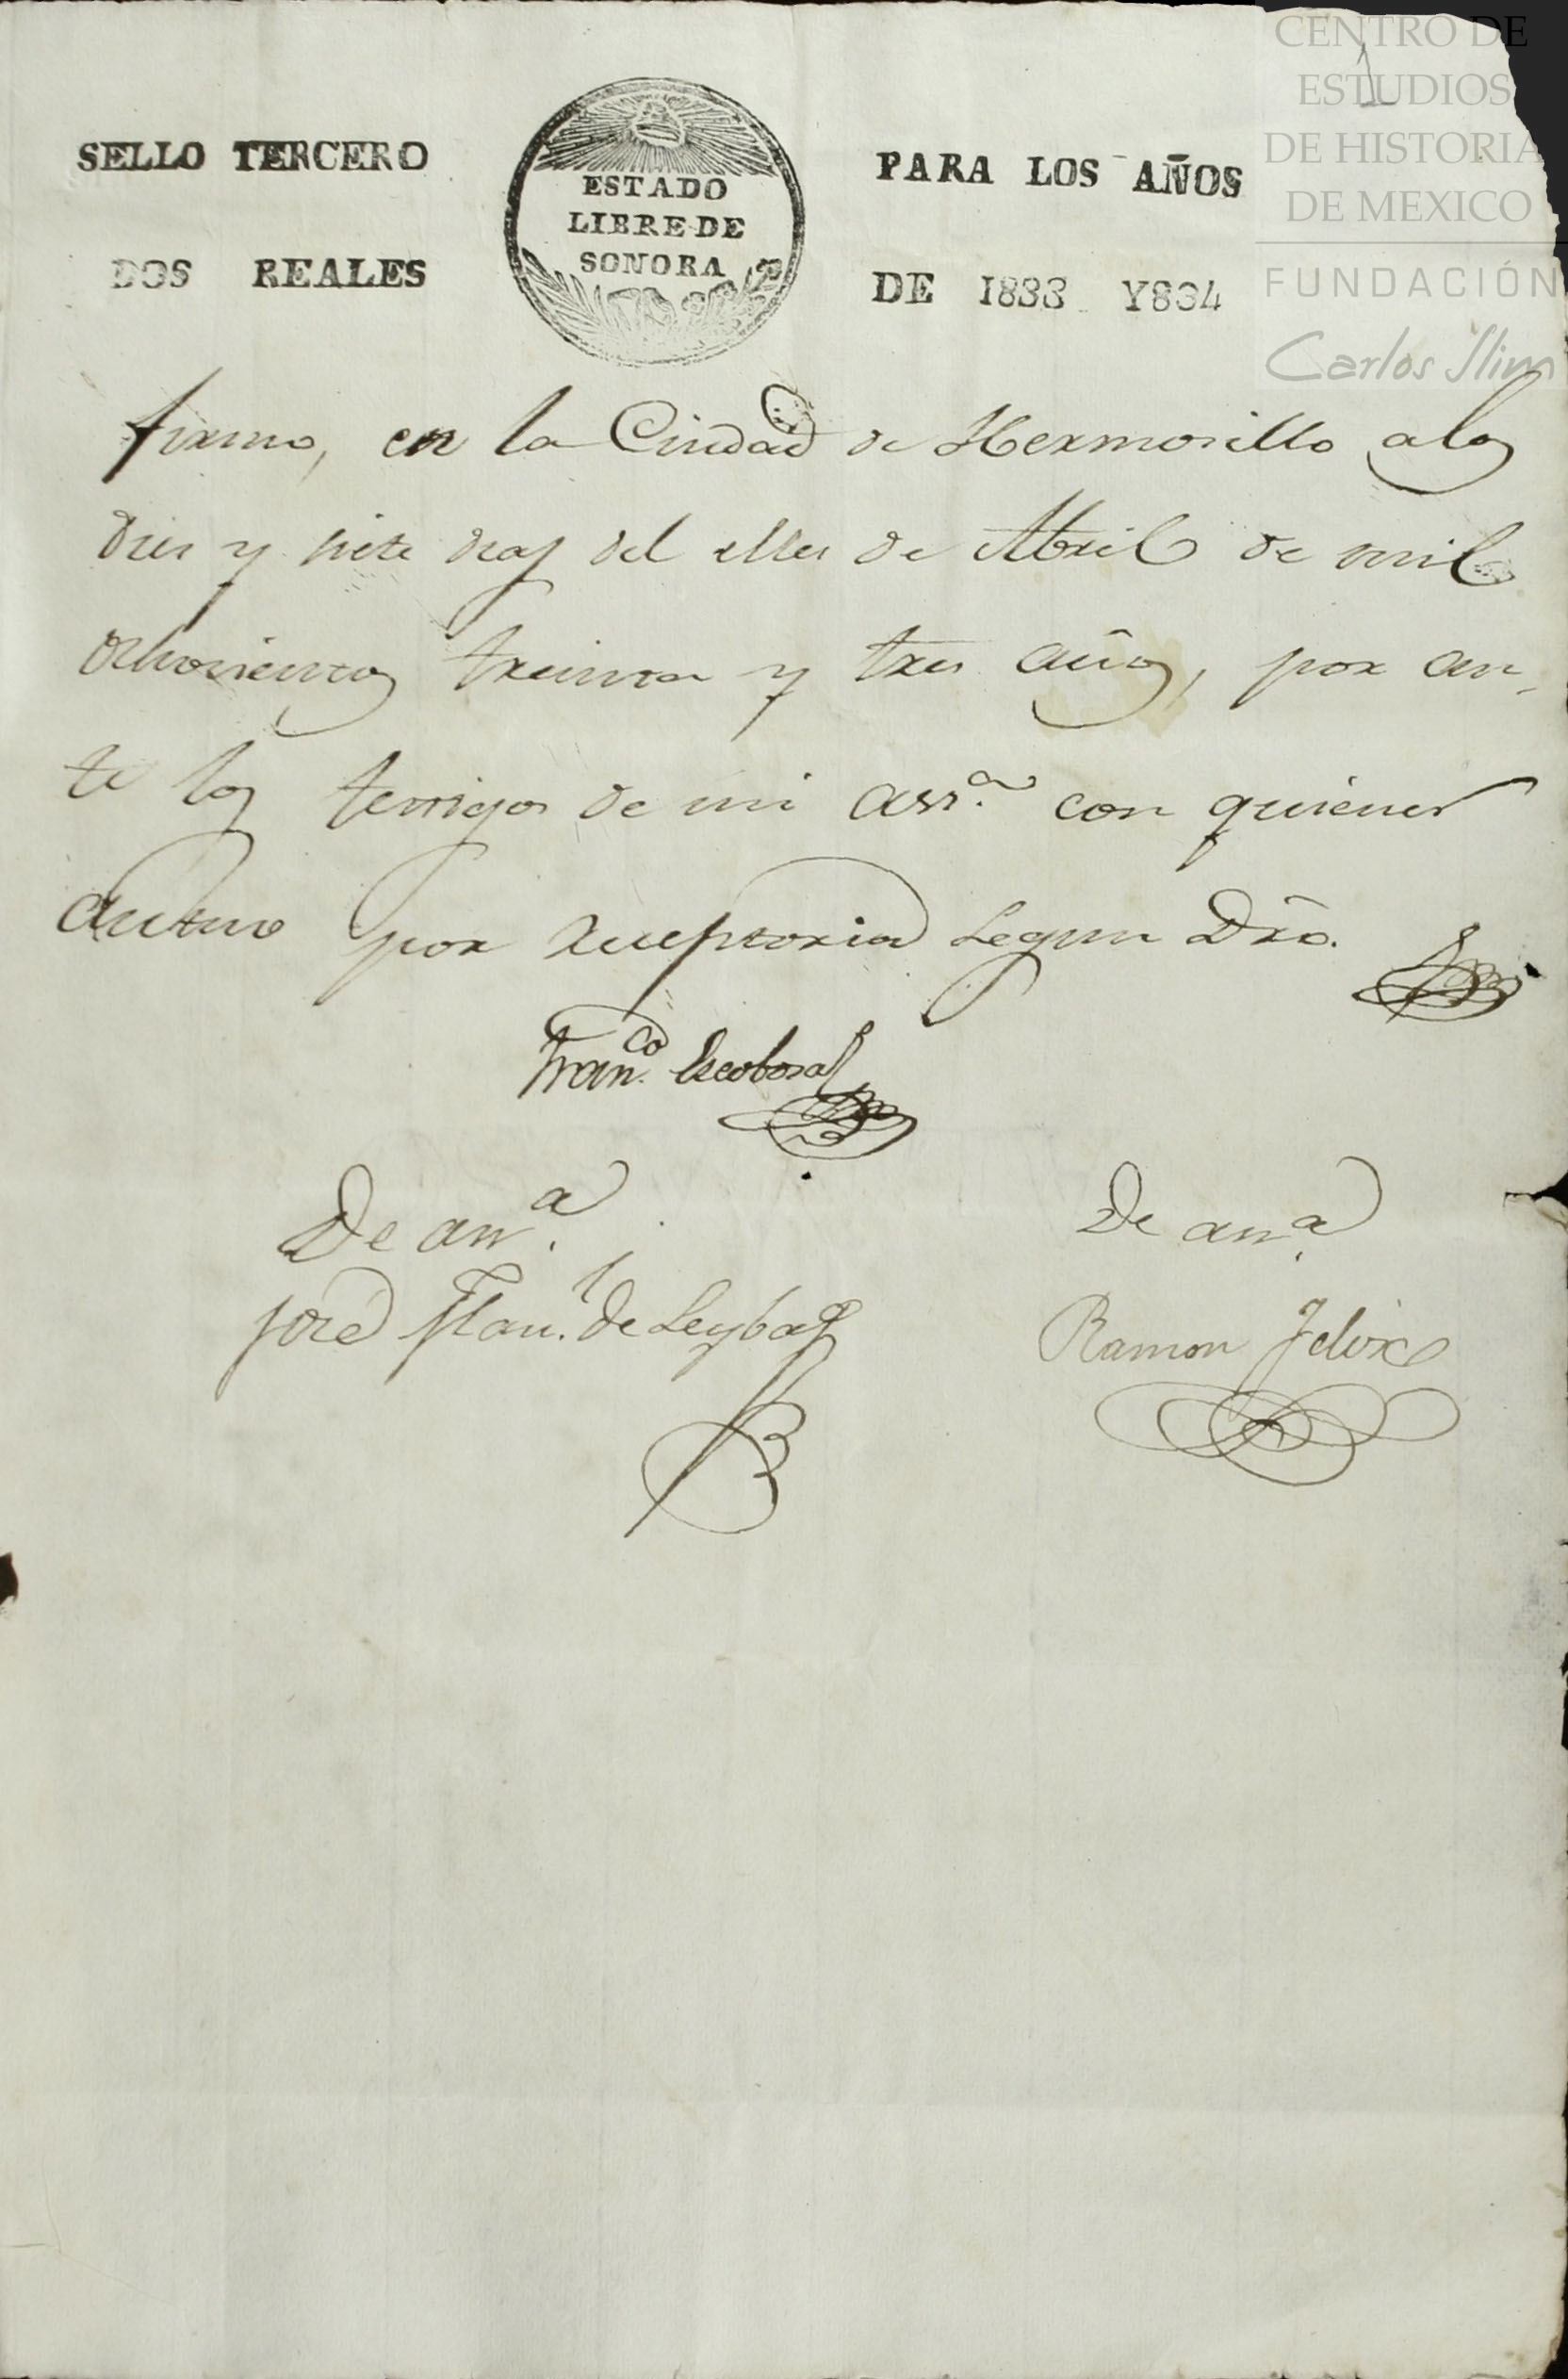 CENTRO DE
ESTUDIOS
DE HISTORIA
DE MEXICO
FUNDACIÓN
Carlos Slim
1
SELLO TERCERO
DOS REALES
ESTADO
LIBRE DE
SONORA
PARA LOS AÑOS
DE 1833 Y 834
firmo, en la Ciudad de Hermosillo a los
dies y siete dias del Mes de Abril de mil
ochosientos treinta y tres años, por an-
te los testigos de mi assª. con quienes
actuo por receptoria segun Dro.
Franco. Escobosa
De assª.
José Man.l de Leyba
De assª.
Ramon Felix